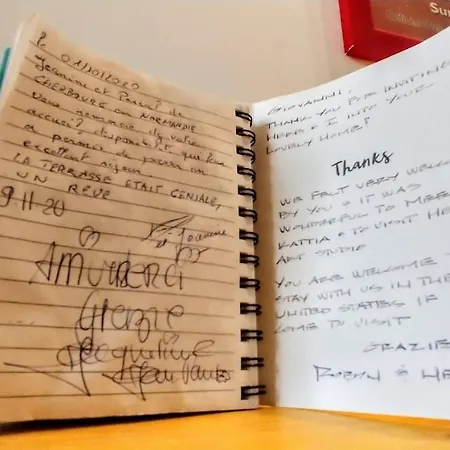 Su
Le 01/10/2020
Jeannine et Pascal de
CHERBOURG en NORMANDIE
vous remercie de votre
accueil,
a permis de passer un
excellent séjour
LA TERRASSE ETAIT GENIALE,
UN REVE
9-11-20
Grazie
Jacqueline
GIOVANNI,
THANK YOU FOR INVITING
HERB & I INTO YOUR
LOVELY HOME!
Thanks
WE FELT VERY WELCOME
BY YOU & IT WAS
WONDERFUL TO MEET
KATTIA & TO VISIT HE
ART STUDIO
YOU ARE WELCOME T
STAY WITH US IN THE
UNITED STATES IF
COME TO VISIT
GRAZIE
ROBYN & HE